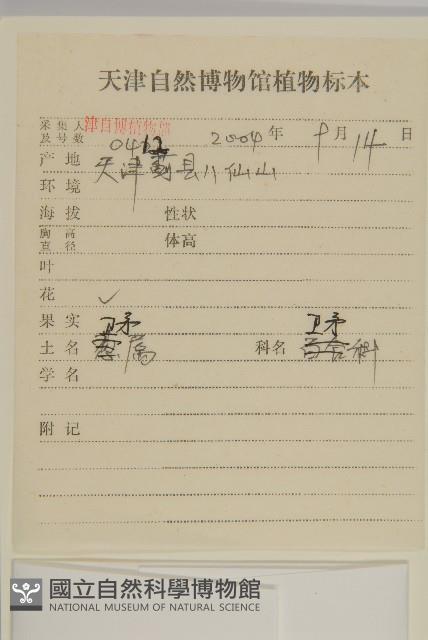 天津自然博物馆植物标本
采集人及号数 津自博植物部 0462 2004年 9月14日
产地 天津蓟县八仙山
环境
海拔 性状
胸高直径 体高
叶
花 ✓
果实
土名 卫矛属 科名 卫矛科
学名
附记
國立自然科學博物館
NATIONAL MUSEUM OF NATURAL SCIENCE